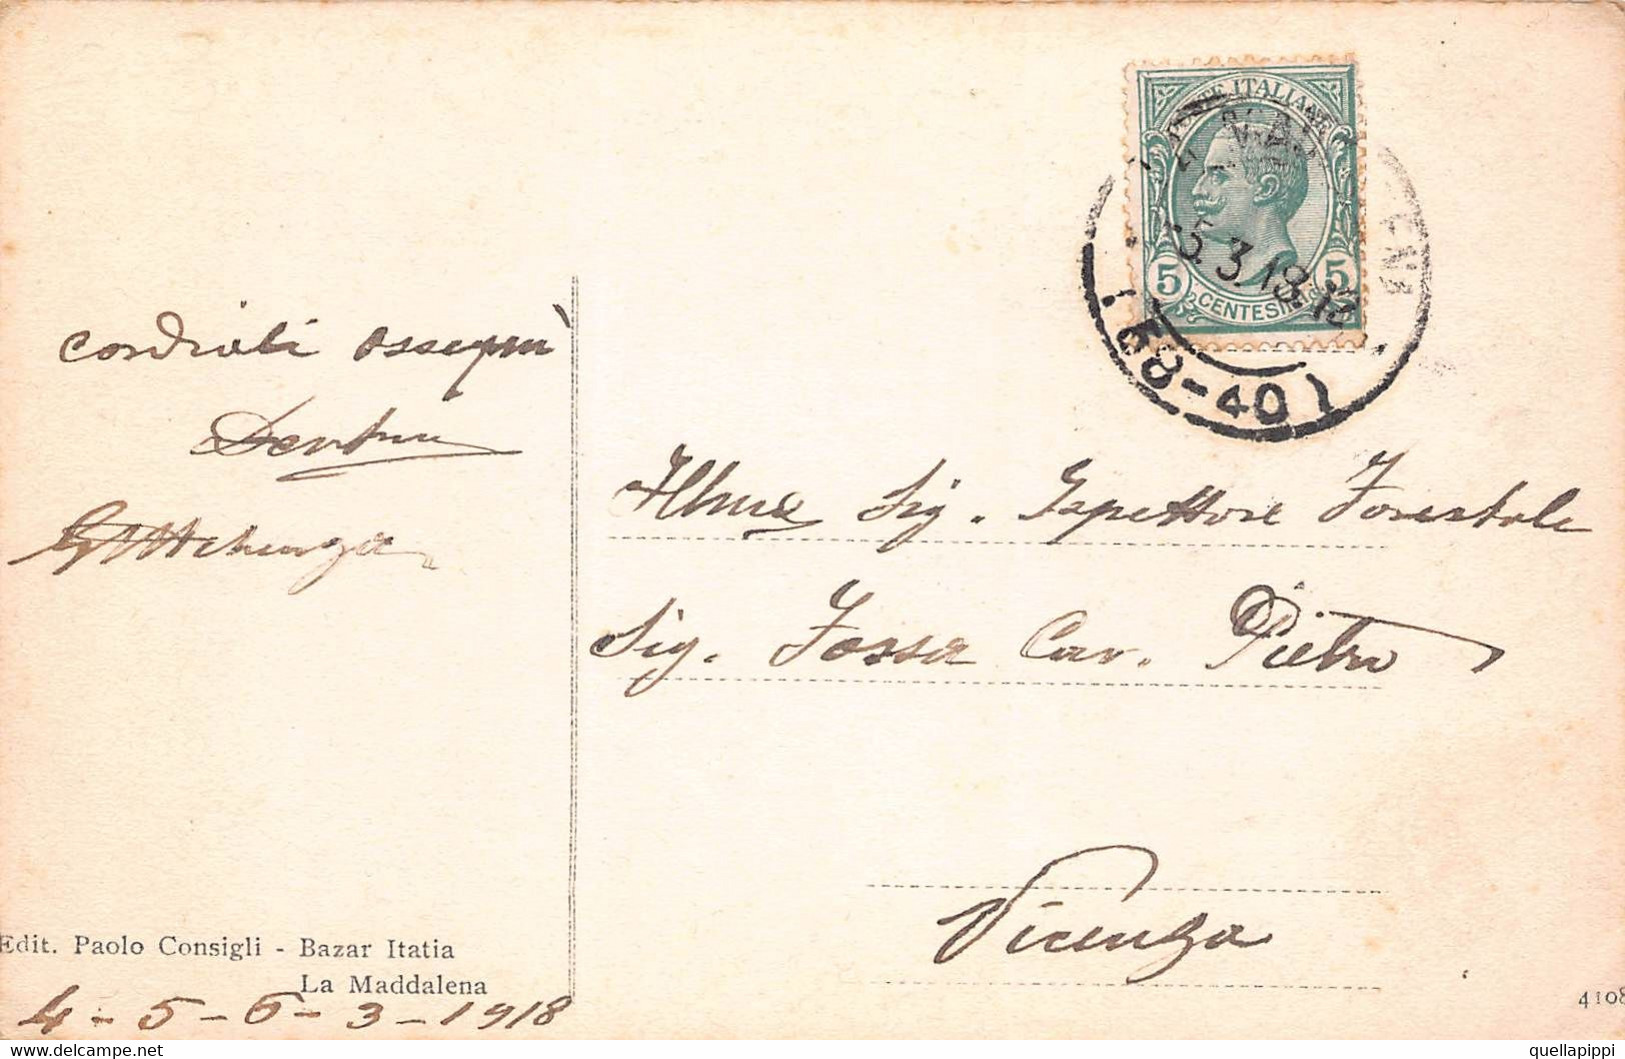 POSTE ITALIANE
-5.3.18.12
5 5
CENTESIMI
(58-40)
cordiali ossequi
Illmo Sig. Ispettore Forestale
Sig. Fossa Cav. Pietro
Vicenza
Edit. Paolo Consigli - Bazar Itatia
La Maddalena
4108
4-5-6-3-1918
quellapippi